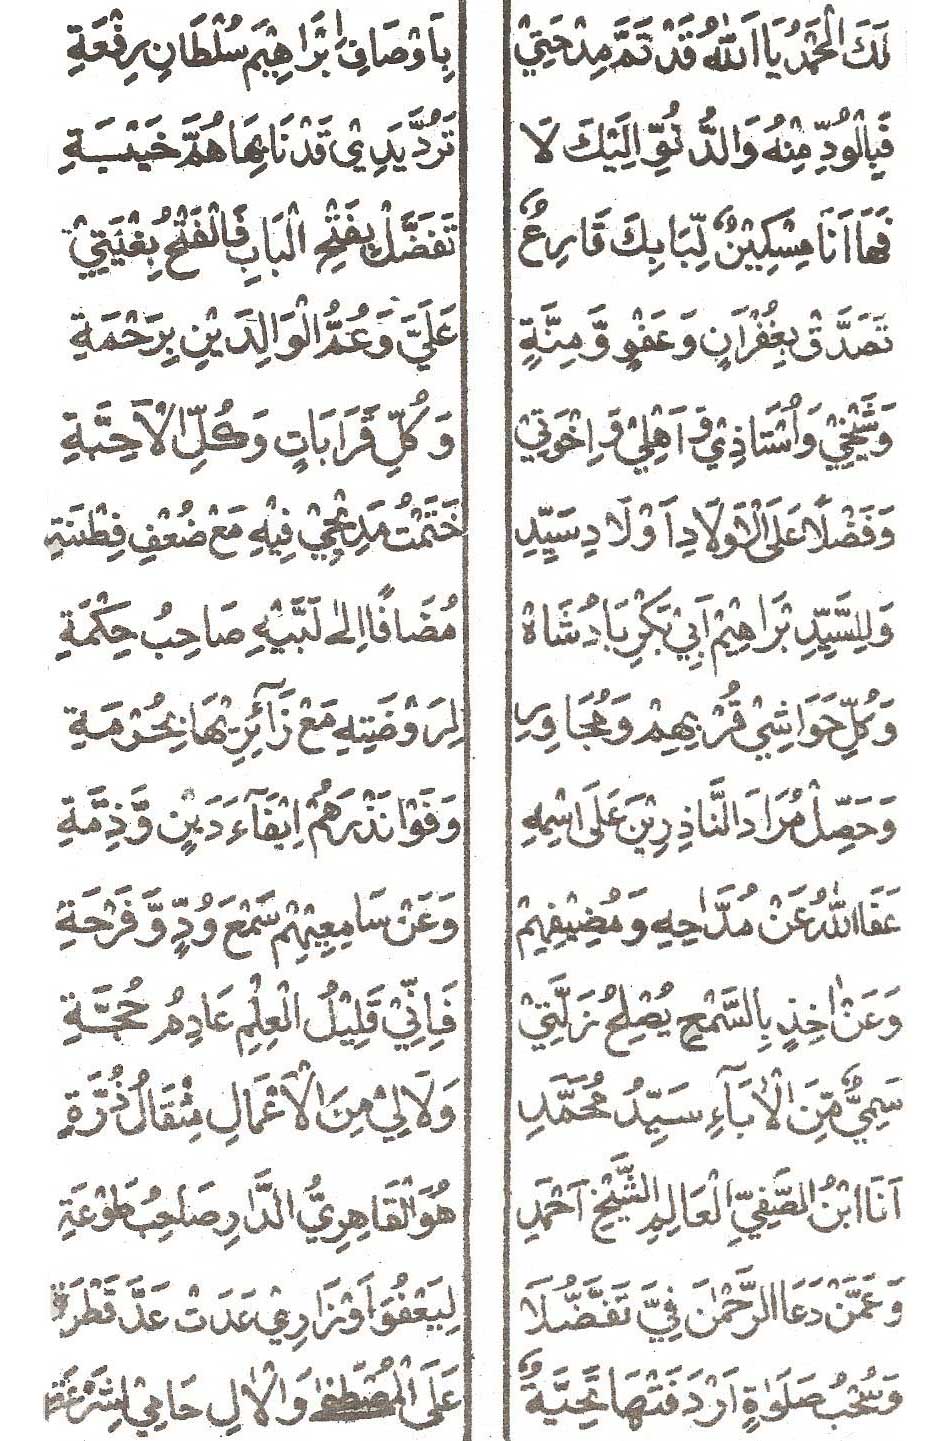 لَكَ الْحَمْدُ يَا اَللّٰهُ قَدْ تَمَّ مِدْحَتِيْ بِاَوْصَافِ اِبْرَاهِيْمَ سُلْطَانِ رِفْعَةِ
فَبِالْوُدِّ مِنْهُ وَالدُّنُوِّ اِلَيْكَ لَا تَرُدَّ يَدِيْ قَدْ نَابَهَا هُمَّ خَيْبَةِ
فَهَا اَنَا مِسْكِيْنٌ لِّبَابِكَ قَارِعٌ تَفَضَّلْ بِفَتْحِ الْبَابِ فَالْفَتْحُ بِغْيَتِيْ
تَصَدَّقْ بِغُفْرَانٍ وَعَفْوٍ وَّمِنَّةٍ عَلَيَّ وَعُمَّ الْوَالِدَيْنِ بِرَحْمَةِ
وَشَيْخِيْ وَاُسْتَاذِيْ وَاَهْلِيْ وَاِخْوَتِيْ وَكُلِّ قَرَابَاتٍ وَكُلِّ الْاَحِبَّةِ
وَفَضْلًا عَلَى الْاَوْلَادِ اَوْلَادِ سَيِّدِ خَتَمْتُ مَدِيْحِيْ فِيْهِ مَعْ ضُعْفِ فِطْنَةِ
وَلِلسَّيِّدِ بْرَاهِيْمَ اَبِيْ بَكْرِ بَادُشَاهْ مُضَافًا اِلٰى لَبَّيْهِ صَاحِبُ حِكْمَةِ
وَكُلِّ حَوَاشِيْ قُرْبِهِمْ وَمُجَاوِرِ لِرَوْضَتِهِ مَعْ زَآئِرِيْهَا بِحُرْمَةِ
وَحَصِّلْ مُرَادَ النَّاذِرِيْنَ عَلَى اسْمِهِ وَفَوْا نَذْرَهُمْ اِيْفَآءَ دَيْنٍ وَّذِمَّةِ
عَفَا اللّٰهُ عَنْ مُدَّاحِهِ وَمُضِيْفِهِمْ وَعَنْ سَامِعِيْهِمْ سَمْعَ وُدٍّ وَّفَرْحَةِ
وَعَنْ اٰخِذٍ بِالسَّمْحِ يُصْلِحُ زَلَّتِيْ فَاِنِّيْ قَلِيْلُ الْعِلْمِ عَادِمُ حُجَّةِ
سَمِيٌّ مِّنَ الْاٰبَآءِ سَيِّدُ مُحَمَّدِ وَلَا لِيْ مِنَ الْاَعْمَالِ مِثْقَالُ ذُرَّةِ
اَنَا ابْنُ الصَّفِيِّ الْعَالِمِ الشَّيْخِ اَحْمَدِ هُوَ الْقَاهِرِيُّ الدَّارِ صَاحِبُ طَوْعَةِ
وَعَمَّنْ دَعَا الرَّحْمٰنَ فِيَّ تَفَضُّلَا لِيَعْفُوَ اَوْزَارِيْ عَدَتْ عَدَّ قَطْرَةِ
وَسُحْبُ صَلَوٰةٍ اَرْدَفَتْهَا تَحِيَّةٌ عَلَى الْمُصْطَفٰى وَالْاٰلِ حَامِيْ لِشِرْعَةِ